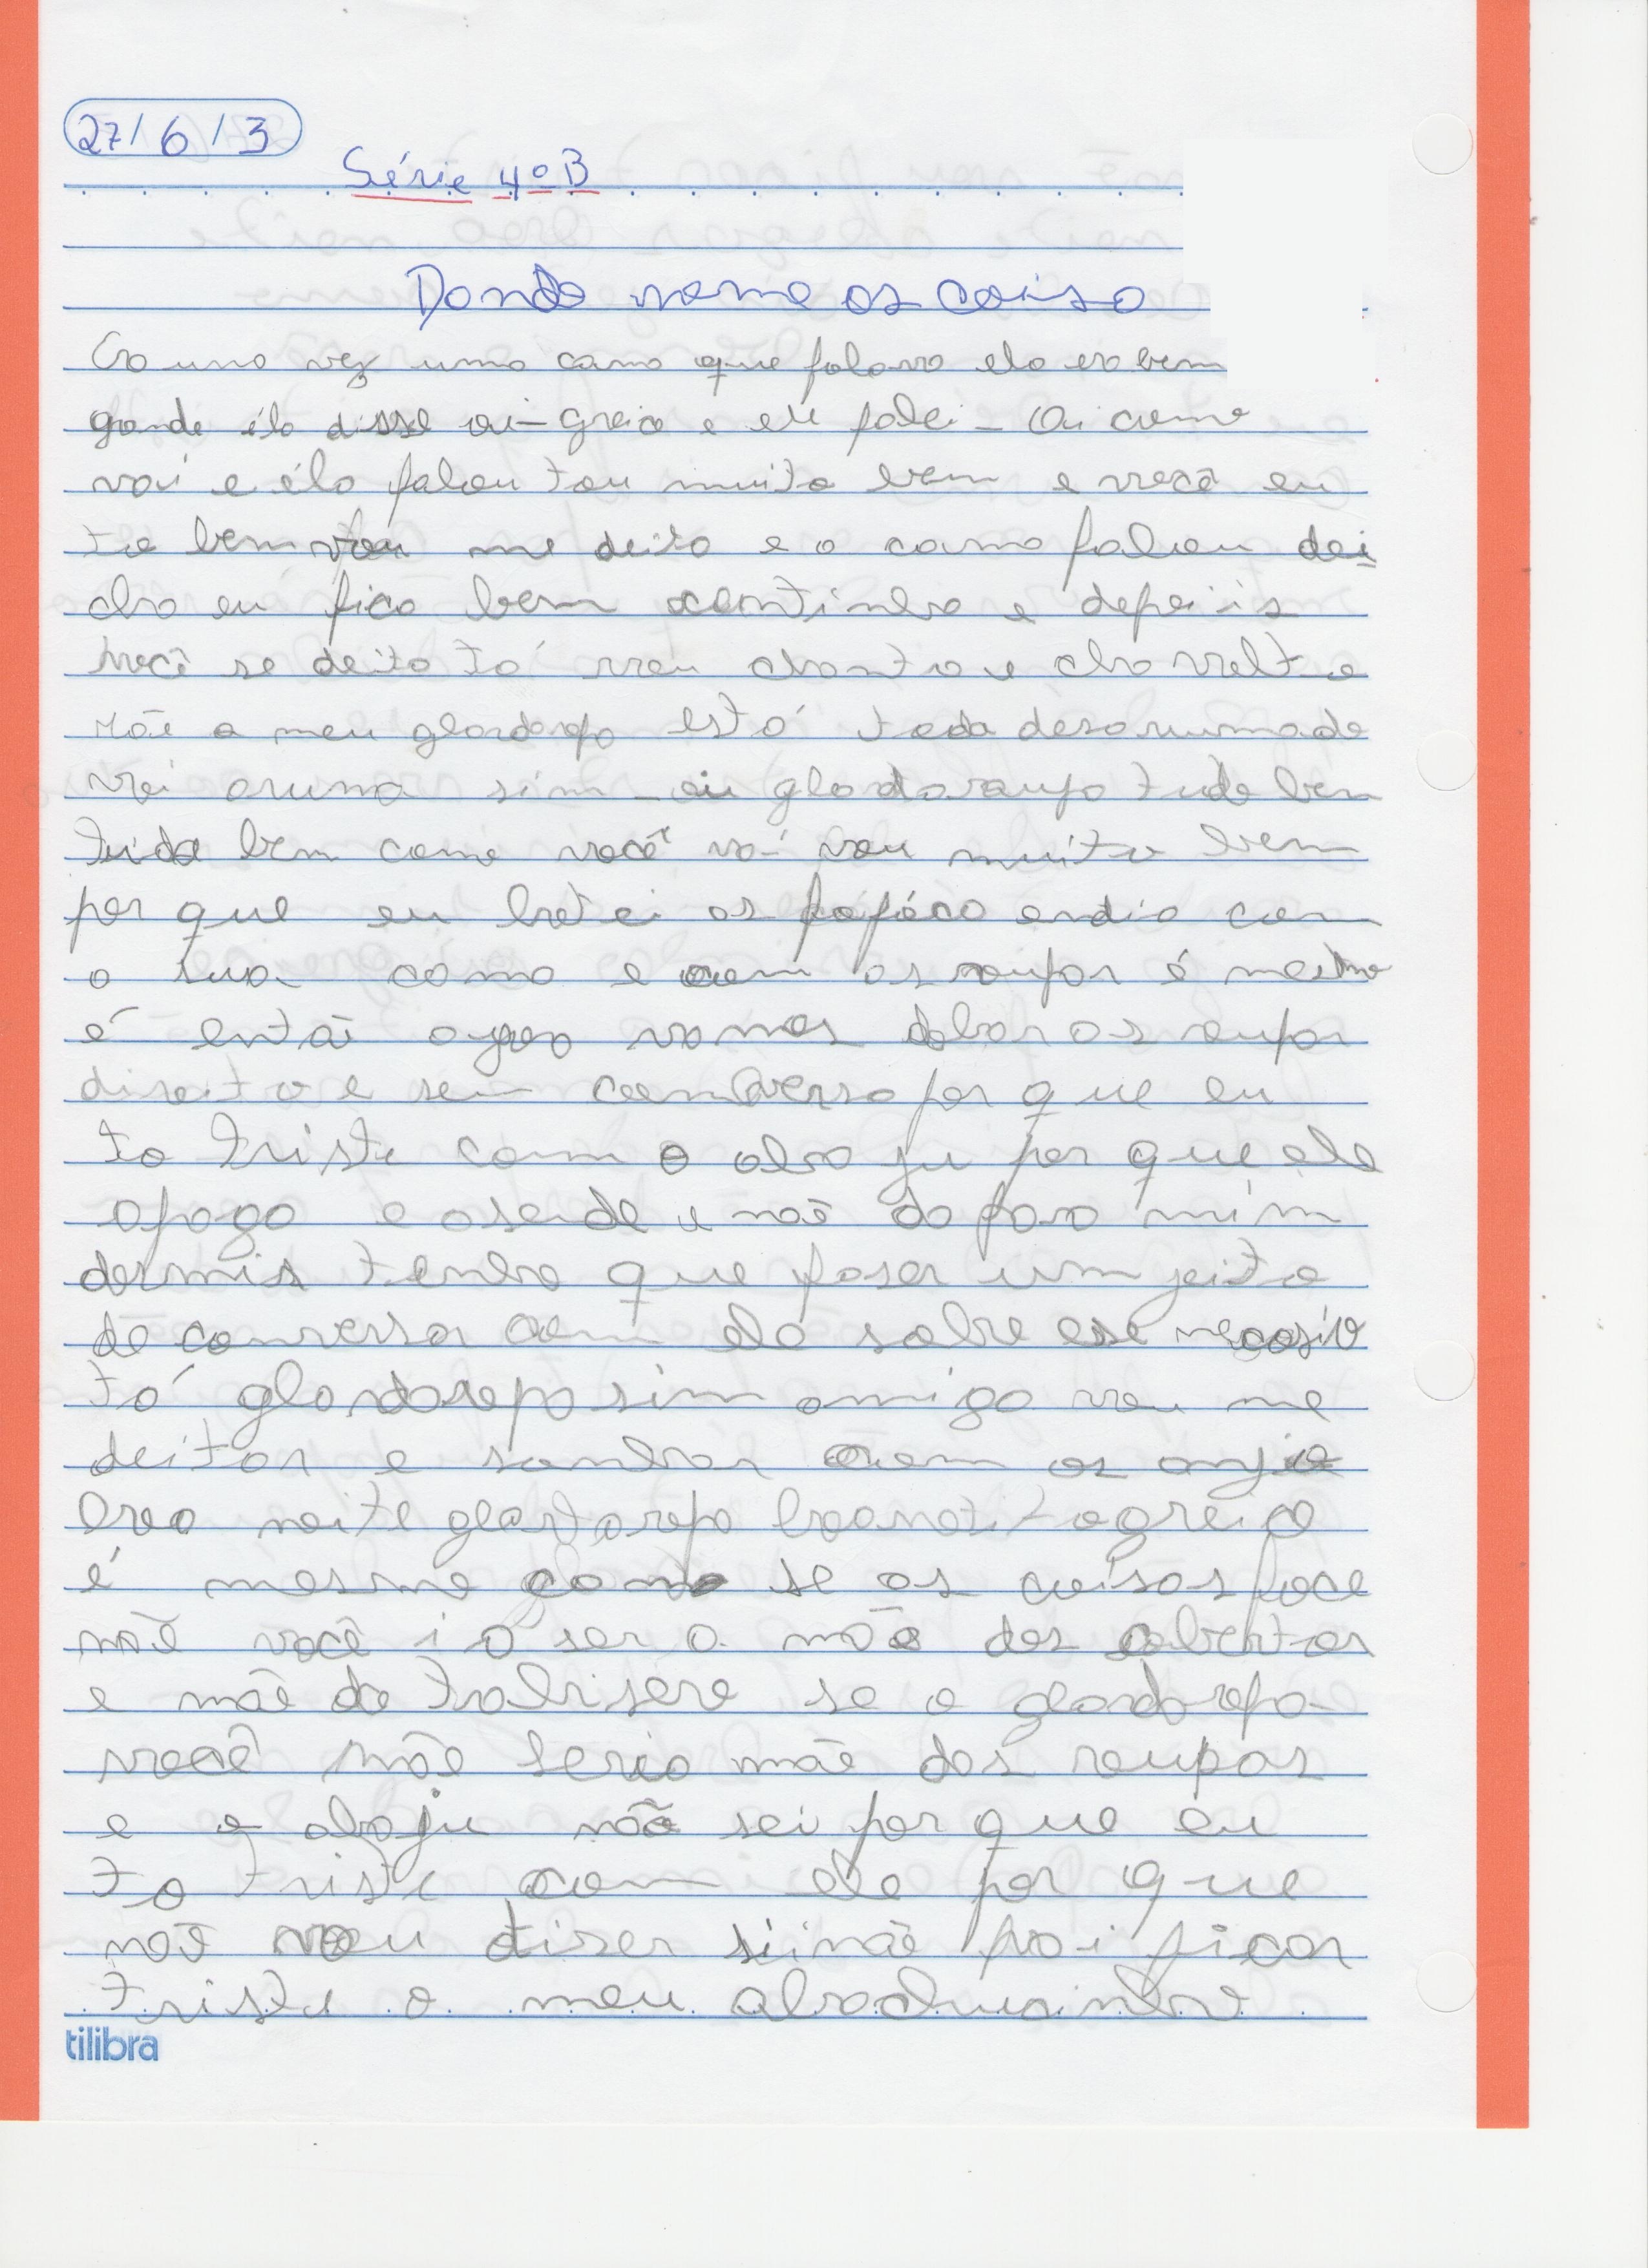 27/6/3
Série 4º B
Dondo nome as coisa
Era uma vez uma cama que falava ela era bem
grande éla disse oi-greica e ele falei - Oi como
vai e éla falou tou muito bem e você eu
to bem vou me deita e a cama falou dei
cha eu fico bem contincha e depois
você se deita tá vou chanta e cha volto
Mãe o meu glardaropo está todo desarumado
vai aruma sim - oi glardaraupo tudo bem
tudo bem como você vai vou muito bem
por que eu botei as fofóca endia com
a sua cama e com as roupar é mesmo
é entāo agora vamos dobar as rupar
direito e sem comversa por que eu
to triste com o abaju por que ele
apaga e asende e não da para mim
dormir tenho que faser um jeito
de conversar com ele sobre ese negosio
tá glardaropo sim amigo vou me
deitar e sonhar com os anjo
boa noite glartaropo boanoti-greica
é mesmo como se as coisas foce
mãe você i a ser a mãe das cobertas
e mãe do trabisero se o glardaropa-
você mãe seria mãe das roupas
e o abaju não sei por que eu
to triste com ele por que
não vou diser sinão vai ficar
triste o meu abachurinho
tilibra